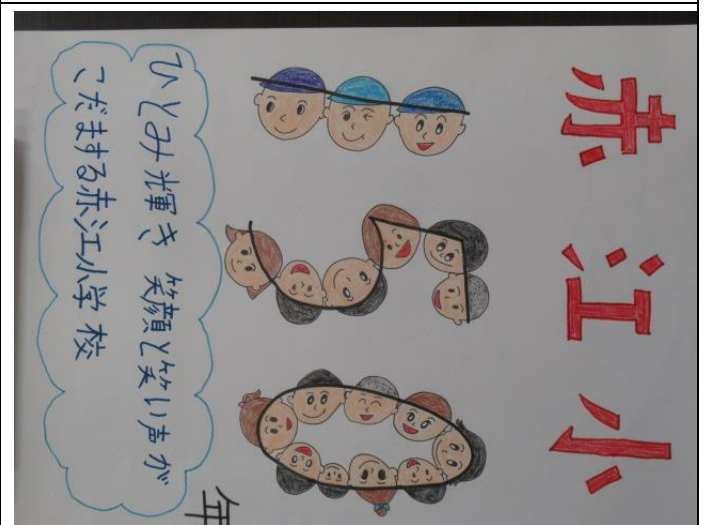 赤江小
150年
ひとみ輝き 笑顔と笑い声が
こだまする赤江小学校